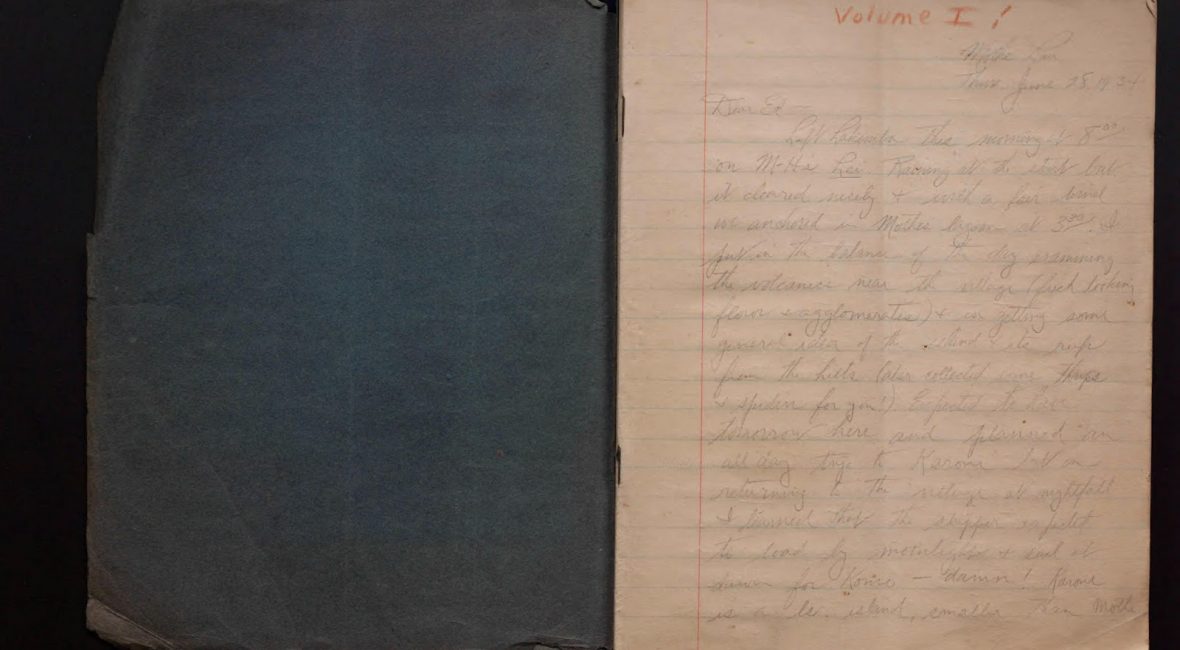 Volume I!
Mothe Fiji
Thurs. June 28, 1934
Dear Ed —
Left Lakemba this morning at 8:00
on M-Ha Lai. Raining at the start but
it cleared nicely & with a fair wind
we anchored in Mothe lagoon at 3:30. I
put in the balance of the day examining
the volcanics near the village (fresh looking
flows & agglomerates) & in getting some
general idea of the island & its reef
from the hills (also collected some
& spiders for you!) Expected to have
tomorrow here and planned an
all day trip to Karoni but on
returning to the village at nightfall
I learned that the skipper expected
to load by moonlight & sail at
dawn for Komo — damn! Karoni
is a ls. island, smaller than Mothe